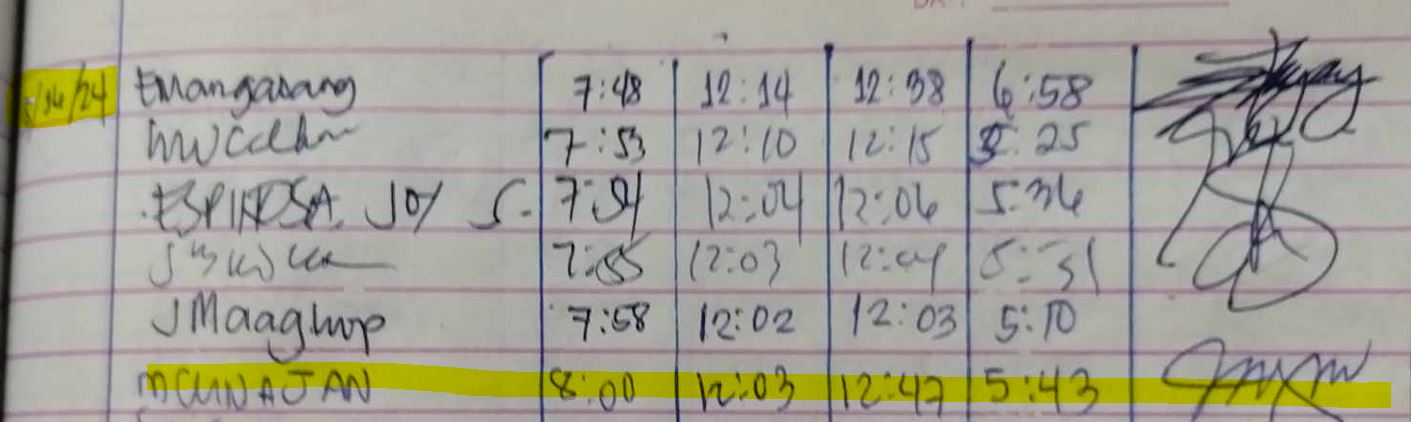 /24 EMangasang 7:48 12:14 12:38 6:58
7:53 12:10 12:15 5:25
ESPINOSA JOY S. 7:54 12:04 12:06 5:36
7:55 12:03 12:04 5:51
JMaaghop 7:58 12:02 12:03 5:10
MCUNAJAN 8:00 12:03 12:47 5:43